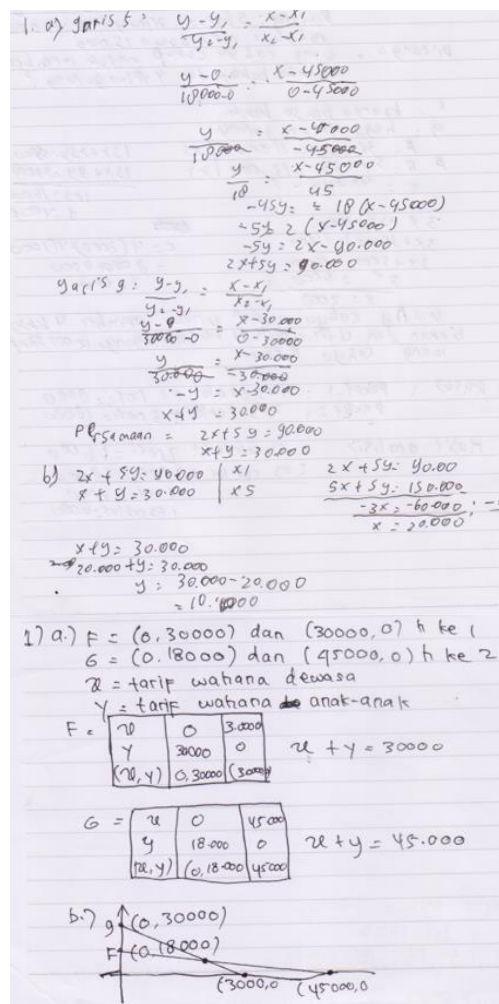 1. a) garis 5: y-y₁ / y₂-y₁ = x-x₁ / x₂-x₁
y-0 / 18000-0 = x-45000 / 0-45000
y / 18000 = x-45000 / -45000
y / 18 = x-45000 / 45
-45y = 18 (x-45000)
-5y = 2 (x-45000)
-5y = 2x-90.000
2x+5y = 90.000
garis g: y-y₁ / y₂-y₁ = x-x₁ / x₂-x₁
y-0 / 30000-0 = x-30.000 / 0-30000
y / 30.000 = x-30.000 / -30.000
-y = x-30.000
x+y = 30.000
Persamaan = 2x+5y = 90.000
x+y = 30.000
b) 2x + 5y = 90.000 | x1 2x + 5y = 90.00
x + y = 30.000 | x5 5x + 5y = 150.000
-3x = -60.000
x = 20.000
x+y = 30.000
20.000 + y = 30.000
y = 30.000-20.000
= 10.000
1) a.) F = (0, 30000) dan (30000, 0) h ke 1
G = (0. 18000) dan (45000, 0) h ke 2
x = tarif wahana dewasa
Y = tarif wahana anak-anak
F = x 0 3.0000
Y 30000 0 x + y = 30000
(x, y) 0, 30000 (30000
G = x 0 45000
y 18.000 0 x + y = 45.000
(x, y) (0, 18.000 45000
b.) g (0, 30000)
F (0, 18000)
(3000,0 (45000, 0